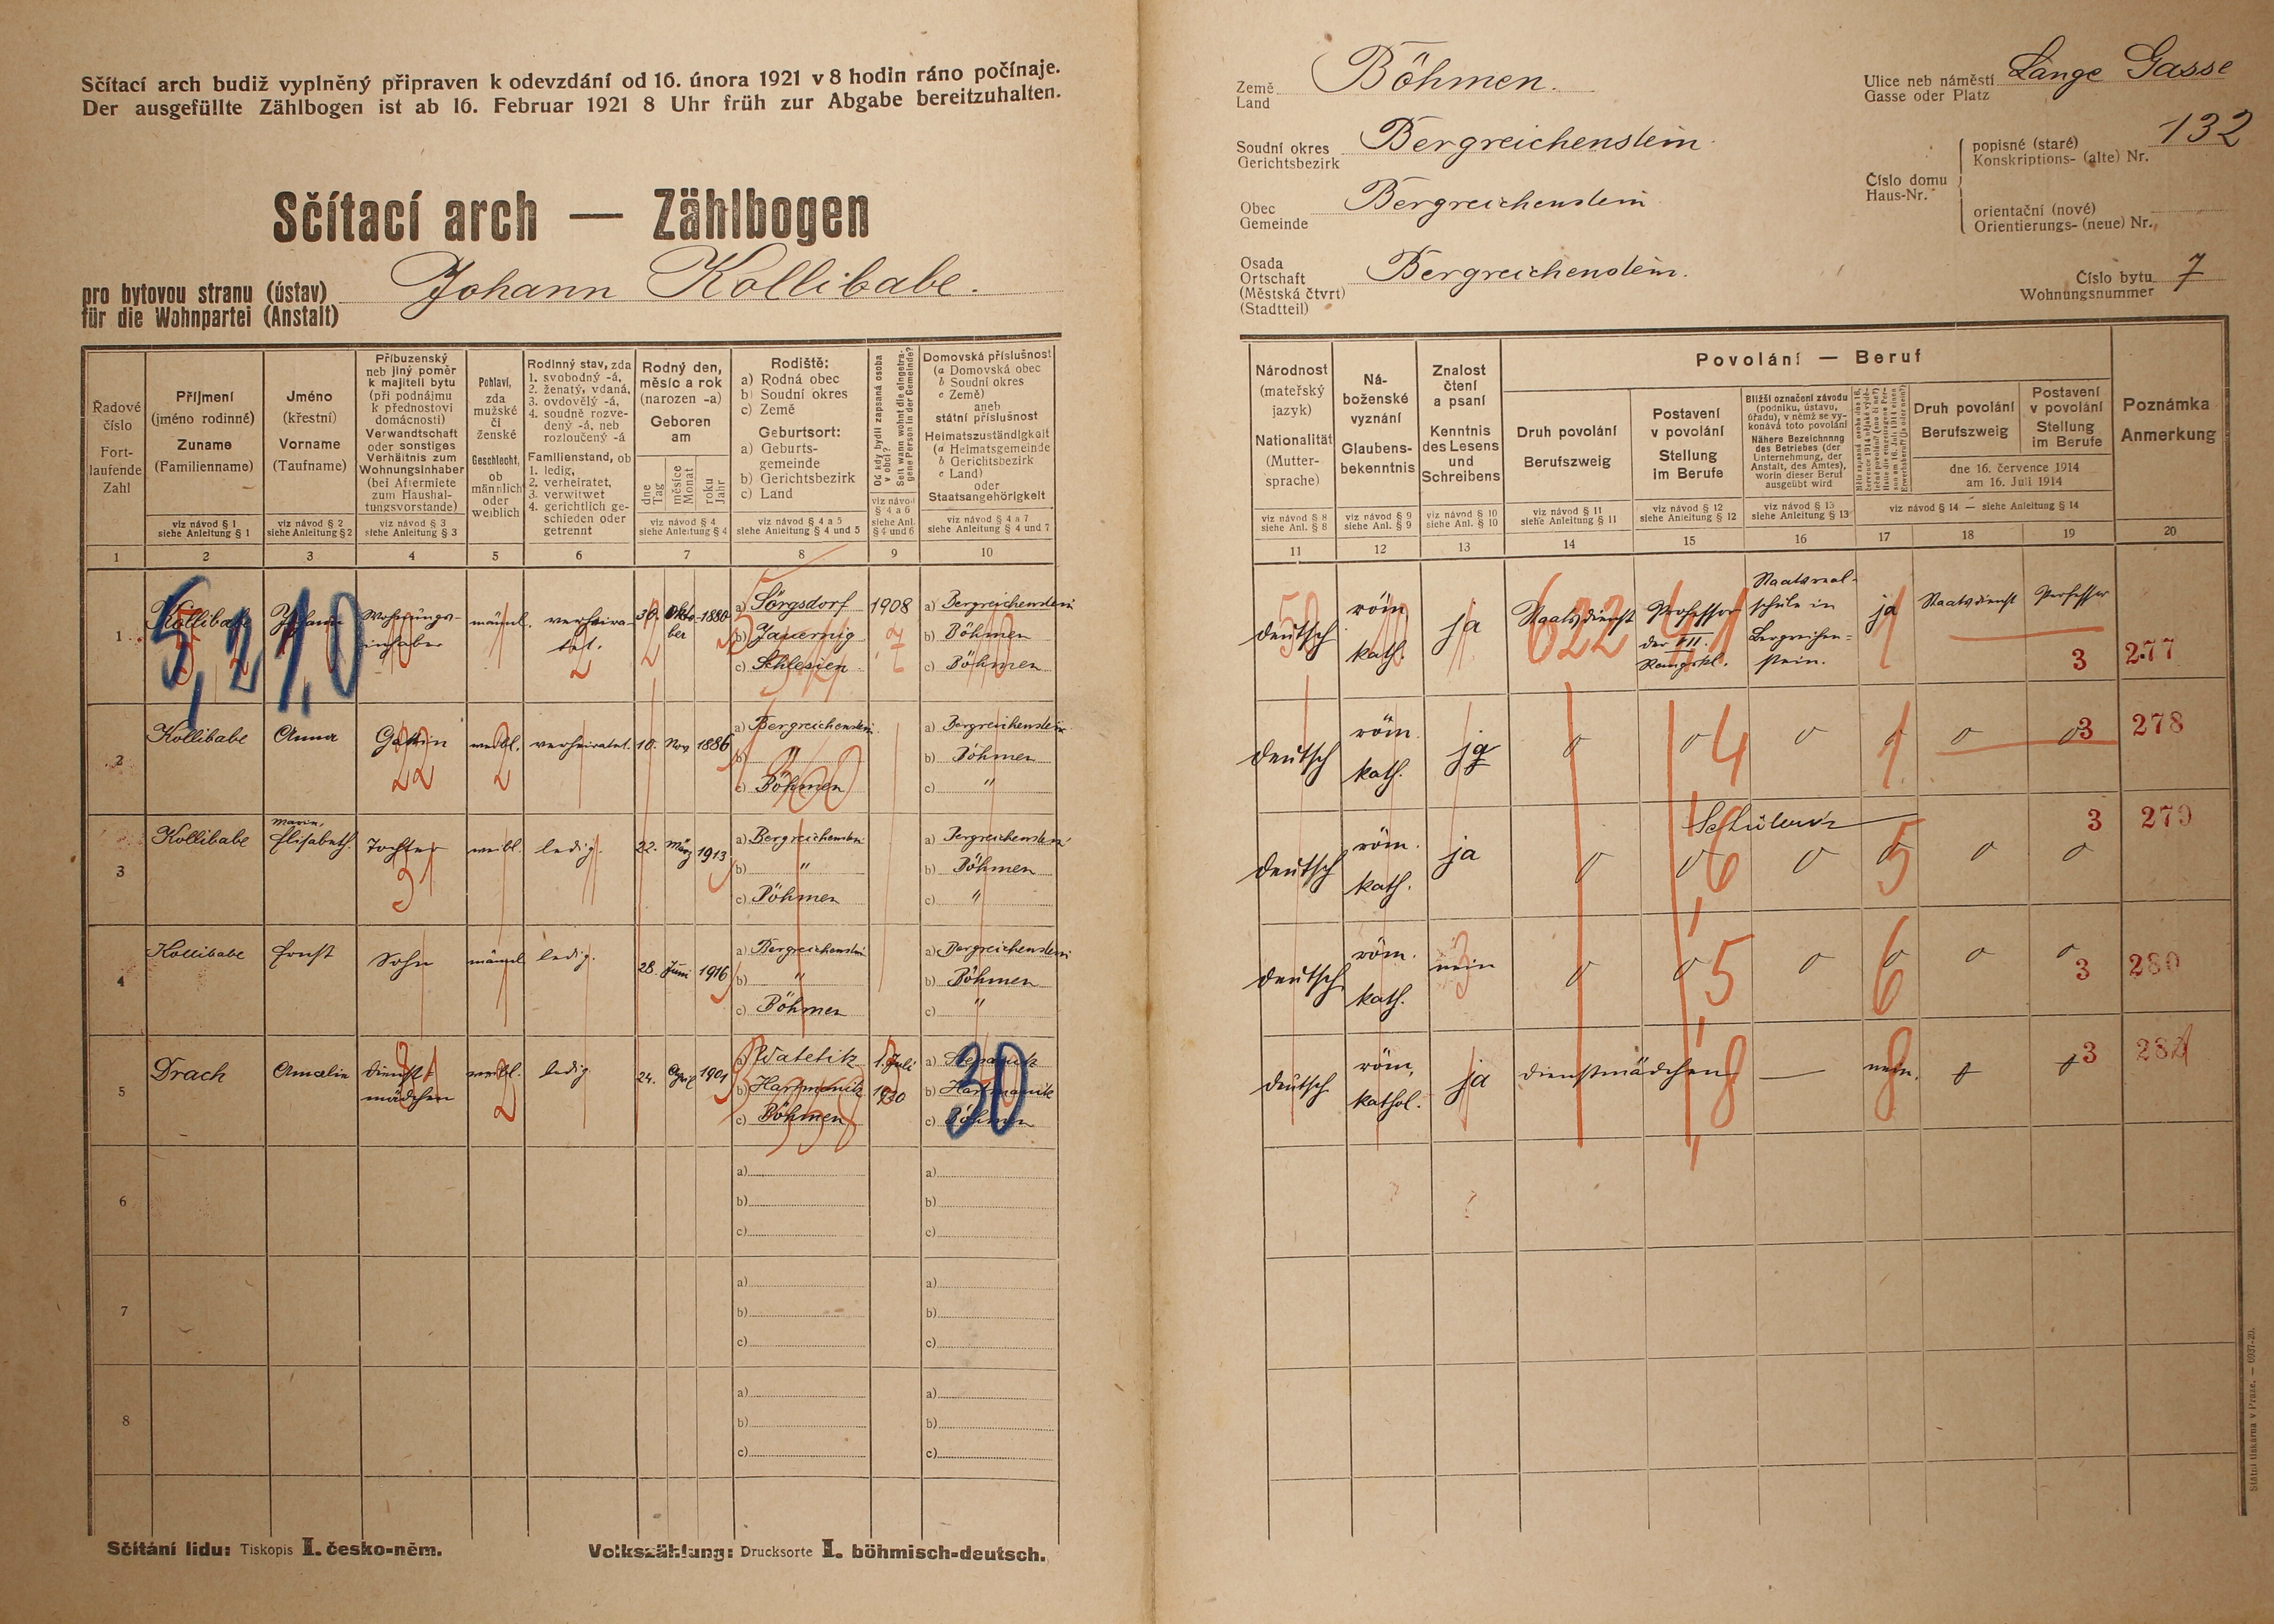 Sčítací arch budiž vyplněný připraven k odevzdání od 16. února 1921 v 8 hodin ráno počínaje.
Der ausgefüllte Zählbogen ist ab 16. Februar 1921 8 Uhr früh zur Abgabe bereitzuhalten.
Sčítací arch — Zählbogen
pro bytovou stranu (ústav)
für die Wohnpartei (Anstalt)
Johann Kollibabe.
Země
Land
Böhmen.
Soudní okres
Gerichtsbezirk
Bergreichenstein
Obec
Gemeinde
Bergreichenstein
Osada
Ortschaft
(Městská čtvrt)
(Stadtteil)
Bergreichenstein.
Ulice neb náměstí
Gasse oder Platz
Lange Gasse
Číslo domu
Haus-Nr.
popisné (staré)
Konskriptions- (alte) Nr.
132
orientační (nové)
Orientierungs- (neue) Nr.
Číslo bytu
Wohnungsnummer
7
Řadové
číslo
Fort-
laufende
Zahl
Příjmení
(jméno rodinné)
Zuname
(Familienname)
viz návod § 1
siehe Anleitung § 1
Jméno
(křestní)
Vorname
(Taufname)
viz návod § 2
siehe Anleitung § 2
Příbuzenský
neb jiný poměr
k majiteli bytu
(při podnájmu
k přednostovi
domácnosti)
Verwandtschaft
oder sonstiges
Verhältnis zum
Wohnungsinhaber
(bei Aftermiete
zum Haushal-
tungsvorstande)
viz návod § 3
siehe Anleitung § 3
Pohlaví,
zda
mužské
či
ženské
Geschlecht,
ob
männlich
oder
weiblich
Rodinný stav, zda
1. svobodný -á,
2. ženatý, vdaná,
3. ovdovělý -á,
4. soudně rozve-
dený -á, neb
rozloučený -á
Familienstand, ob
1. ledig,
2. verheiratet,
3. verwitwet
4. gerichtlich ge-
schieden oder
getrennt
Rodný den,
měsíc a rok
(narozen -a)
Geboren
am
dne
Tag
měsíce
Monat
roku
Jahr
viz návod § 4
siehe Anleitung § 4
Rodiště:
a) Rodná obec
b) Soudní okres
c) Země
Geburtsort:
a) Geburts-
gemeinde
b) Gerichtsbezirk
c) Land
viz návod § 4 a 5
siehe Anleitung § 4 und 5
Od kdy bydlí zapsaná osoba
v obci?
Seit wann wohnt die eingetra-
gene Person in der Gemeinde?
viz návod
§ 4 a 6
siehe Anl.
§ 4 und 6
Domovská příslušnost
(a Domovská obec
b Soudní okres
c Země)
aneb
státní příslušnost
Heimatszuständigkeit
(a Heimatsgemeinde
b Gerichtsbezirk
c Land)
oder
Staatsangehörigkeit
viz návod § 4 a 7
siehe Anleitung § 4 und 7
Národnost
(mateřský
jazyk)
Nationalität
(Mutter-
sprache)
viz návod § 8
siehe Anleitung § 8
Ná-
boženské
vyznání
Glaubens-
bekenntnis
viz návod § 9
siehe Anl. § 9
Znalost
čtení
a psaní
Kenntnis
des Lesens
und
Schreibens
viz návod § 10
siehe Anl. § 10
Povolání — Beruf
Druh povolání
Berufszweig
viz návod § 11
siehe Anleitung § 11
Postavení
v povolání
Stellung
im Berufe
viz návod § 12
siehe Anleitung § 12
Bližší označení závodu
(podniku, ústavu,
úřadu), v němž se vy-
konává toto povolání
Nähere Bezeichnung
des Betriebes (der
Unternehmung, der
Anstalt, des Amtes),
worin dieser Beruf
ausgeübt wird
viz návod § 13
siehe Anleitung § 13
Druh povolání
Berufszweig
Postavení
v povolání
Stellung
im Berufe
dne 16. července 1914
am 16. Juli 1914
viz návod § 14 — siehe Anleitung § 14
Poznámka
Anmerkung
1 2 3 4 5 6 7 8 9 10 11 12 13 14 15 16 17 18 19 20
1 Kollibabe Johann Wohnungs-
inhaber männl. verheira-
tet. 30. Okto-
ber 1880 a) Sörgsdorf
b) Jauernig
c) Schlesien 1908 a) Bergreichenstein
b) Böhmen
c) Böhmen
deutsch röm.
kath. ja Staatsdienst Professor
der VII.
Rangskl. Staatsreal-
schule in
Bergreichen-
stein. ja Staatsdienst Professor 3 277
5,2 1,0
622
2 Kollibabe Anna Gattin weibl. verheiratet. 10. Nov 1886 a) Bergreichenstein
b) "
c) Böhmen a) Bergreichenstein
b) Böhmen
c) "
deutsch röm.
kath. ja 0 0 0 0 0 0 3 278
22 2 4 1
3 Kollibabe Maria,
Elisabeth. Tochter weibl. ledig. 22. März 1913 a) Bergreichenstein
b) "
c) Böhmen a) Bergreichenstein
b) Böhmen
c) "
deutsch röm.
kath. ja Schülerin 0 0 0 0 0 0 3 279
31 6 5
4 Kollibabe Ernst Sohn männl ledig. 28. Juni 1916 a) Bergreichenstein
b) "
c) Böhmen a) Bergreichenstein
b) Böhmen
c) "
deutsch röm.
kath. nein 0 0 0 0 0 0 3 280
3 5 6
5 Drach Amalie Dienst-
mädchen weibl. ledig 24. April 1901 a) Watetitz
b) Hartmanitz
c) Böhmen 1. Juli
1920 a)
b) Hartmanitz
c) Böhmen
30
deutsch röm.
kathol. ja Dienstmädchen — nein. 3 281
2 8 8
6 a) b) c) a) b) c)
7 a) b) c) a) b) c)
8 a) b) c) a) b) c)
Sčítání lidu: Tiskopis I. česko-něm.
Volkszählung: Drucksorte I. böhmisch-deutsch.
Státní tiskárna v Praze. — 6937-20.